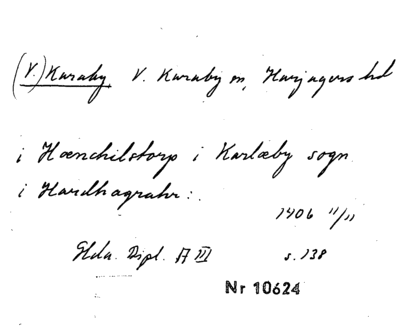 (V.) Karaby V. Karaby sn, Harjagers hd
i Hænchilstorp i Karlæby sogn
i Hardhagrahr:.
1406 11/11
Hda. Dipl. A III s. 138
Nr 10624